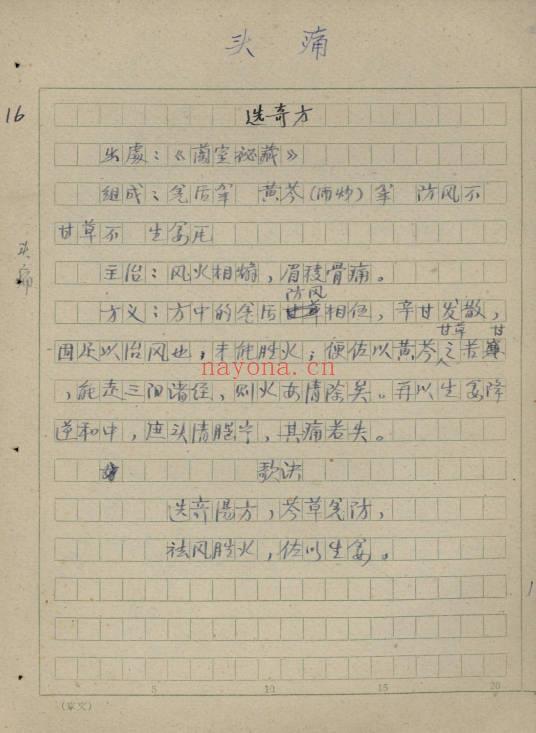 头痛
16
选奇方
出處：《蘭室秘藏》
组成：羌活 黄芩(酒炒) 防风
甘草 生姜
头痛
主治：风火相煽，眉棱骨痛。
防风
方义：方中的羌活相伍，辛甘发散，
甘草 甘
固足以治风也，未能胜火；便佐以黄芩之苦寒
nayona.cn
，能走三阳诸经，则火与清除矣。再以生姜降
逆和中，使头清脘宁，其痛若失。
歌诀
选奇湯方，芩草羌防，
祛风胜火，佐以生姜。
5 10 15 20